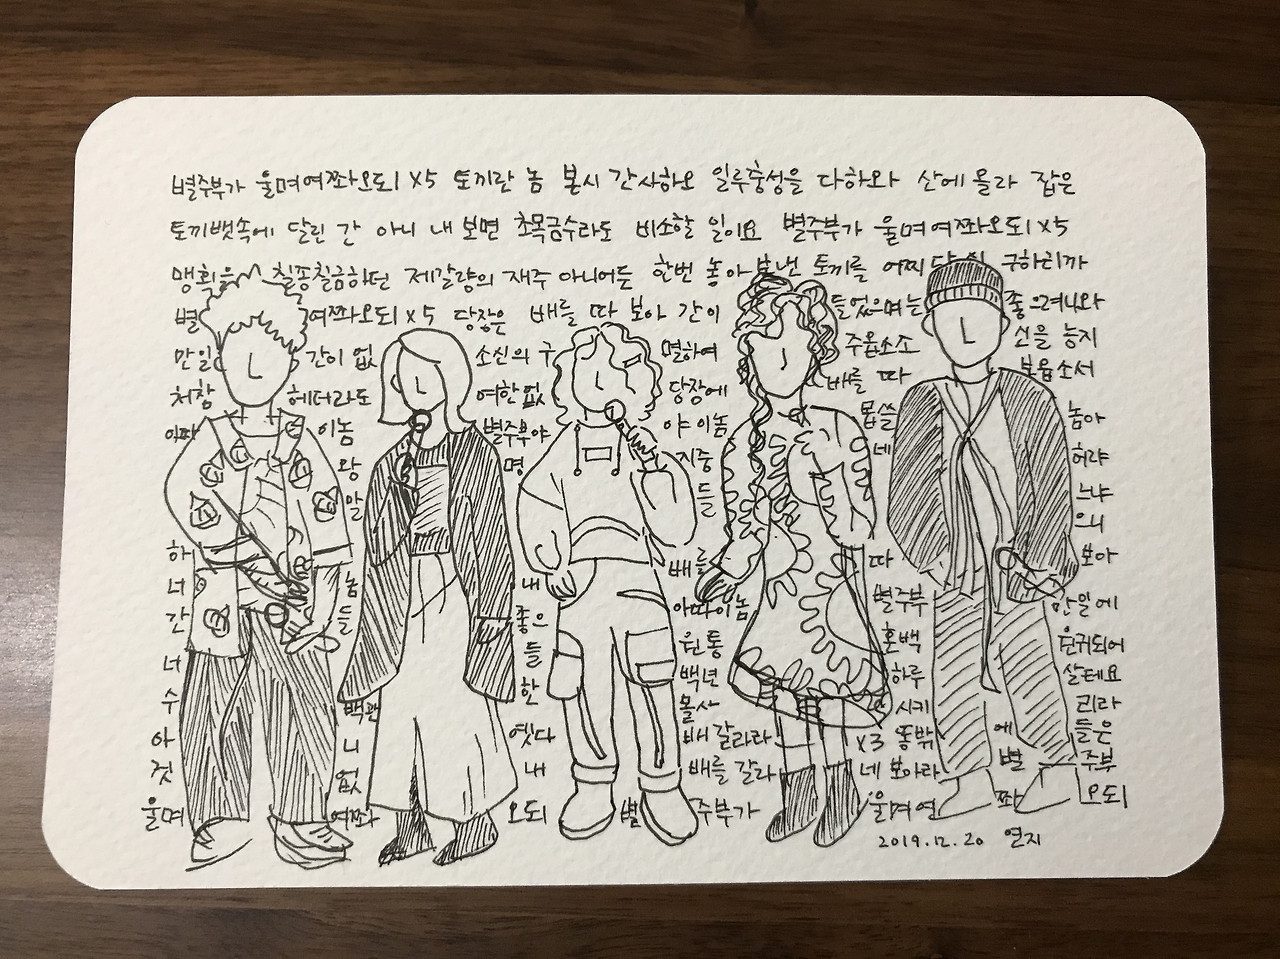 별주부가 울며여쫘오되 x5 토끼란 놈 본시 간사하오 일루충성을 다하와 산에 올라 잡은
토끼뱃속에 달린 간 아니 내 보면 초목금수라도 비소할 일이요 별주부가 울며여쫘오되 x5
맹획을 칠종칠금하던 제갈량의 재주 아니어든 한번 놓아 보낸 토끼를 어찌 구하리까
별 여쫘오되 x5 당장은 배를 따 보아 간이 들었으며는 좋으려니와
만일 간이 없 소신의 구 멸하여 주옵소소 신을 능지
처참 헤더라도 여한없 당장에 배를 따 보옵소서
이놈 별주부야 야 이놈 몹쓸 놈아
왕 명 지중 네 허랴
알 들 느냐
으니
하 배를 따 보아
너 놈 내 아따이놈 별주부 만일에
간 들 좋으 원통 혼백 원귀되어
너 들 백년 하루 살테요
수 백관 한 몰사 시키 리라
아 니 옛다 배 갈라라 x3 똥밖 에 들은
것 없 내 배를 갈라 네 보아라 별 주부
울며 여쫘 오되 별 주부가 울며여 쫘 오되
2019.12.20 연지